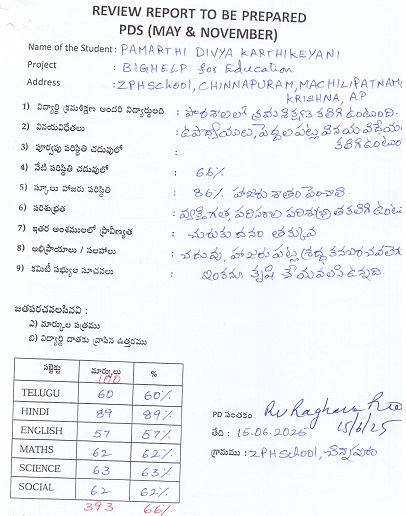 REVIEW REPORT TO BE PREPARED
PDS (MAY & NOVEMBER)
Name of the Student: PAMARTHI DIVYA KARTHIKEYANI
Project : BIGHELP for Education
Address : ZPHSchool, CHINNAPURAM, MACHILIPATNAM
KRISHNA, AP
1) విద్యార్థి క్రమశిక్షణ అందరి విద్యార్థులది : పాఠశాలలో క్రమశిక్షణ కలిగి ఉంటుంది.
2) వినయవిధేతలు : ఉపాధ్యాయులు, పెద్దలపట్ల వినయ విధేయ
కలిగి ఉంటుం
3) పూర్వపు పరిస్థితి చదువులో :
4) నేటి పరిస్థితి చదువులో : 66%
5) స్కూలు హాజరు పరిస్థితి : 86% హాజరు శాతం పెంచాలి.
6) పరిశుభ్రత : వ్యక్తిగత, పరిసరాల పరిశుభ్రత కలిగి ఉంటు
7) ఇతర అంశములలో ప్రావీణ్యత : చురుకుదనం తక్కువ
8) అభిప్రాయాలు / సలహాలు : చదువు, హాజరు పట్ల శ్రద్ధ కనబరచవలెను
9) కమిటీ సభ్యుల సూచనలు : ఇంకనూ కృషి చేయవలసి ఉన్నది.
జతపరచవలసినవి :
ఎ) మార్కుల పత్రము
బి) విద్యార్థి దాతకు వ్రాసిన ఉత్తరము
సబ్జెక్టు మార్కులు %
100
TELUGU 60 60%
HINDI 89 89%
ENGLISH 57 57%
MATHS 62 62%
SCIENCE 63 63%
SOCIAL 62 62%
393 66%
PD సంతకం : Raghava Rao
15/6/25
తేది : 15.06.2025
గ్రామము : ZPHSchool, చిన్నాపురం